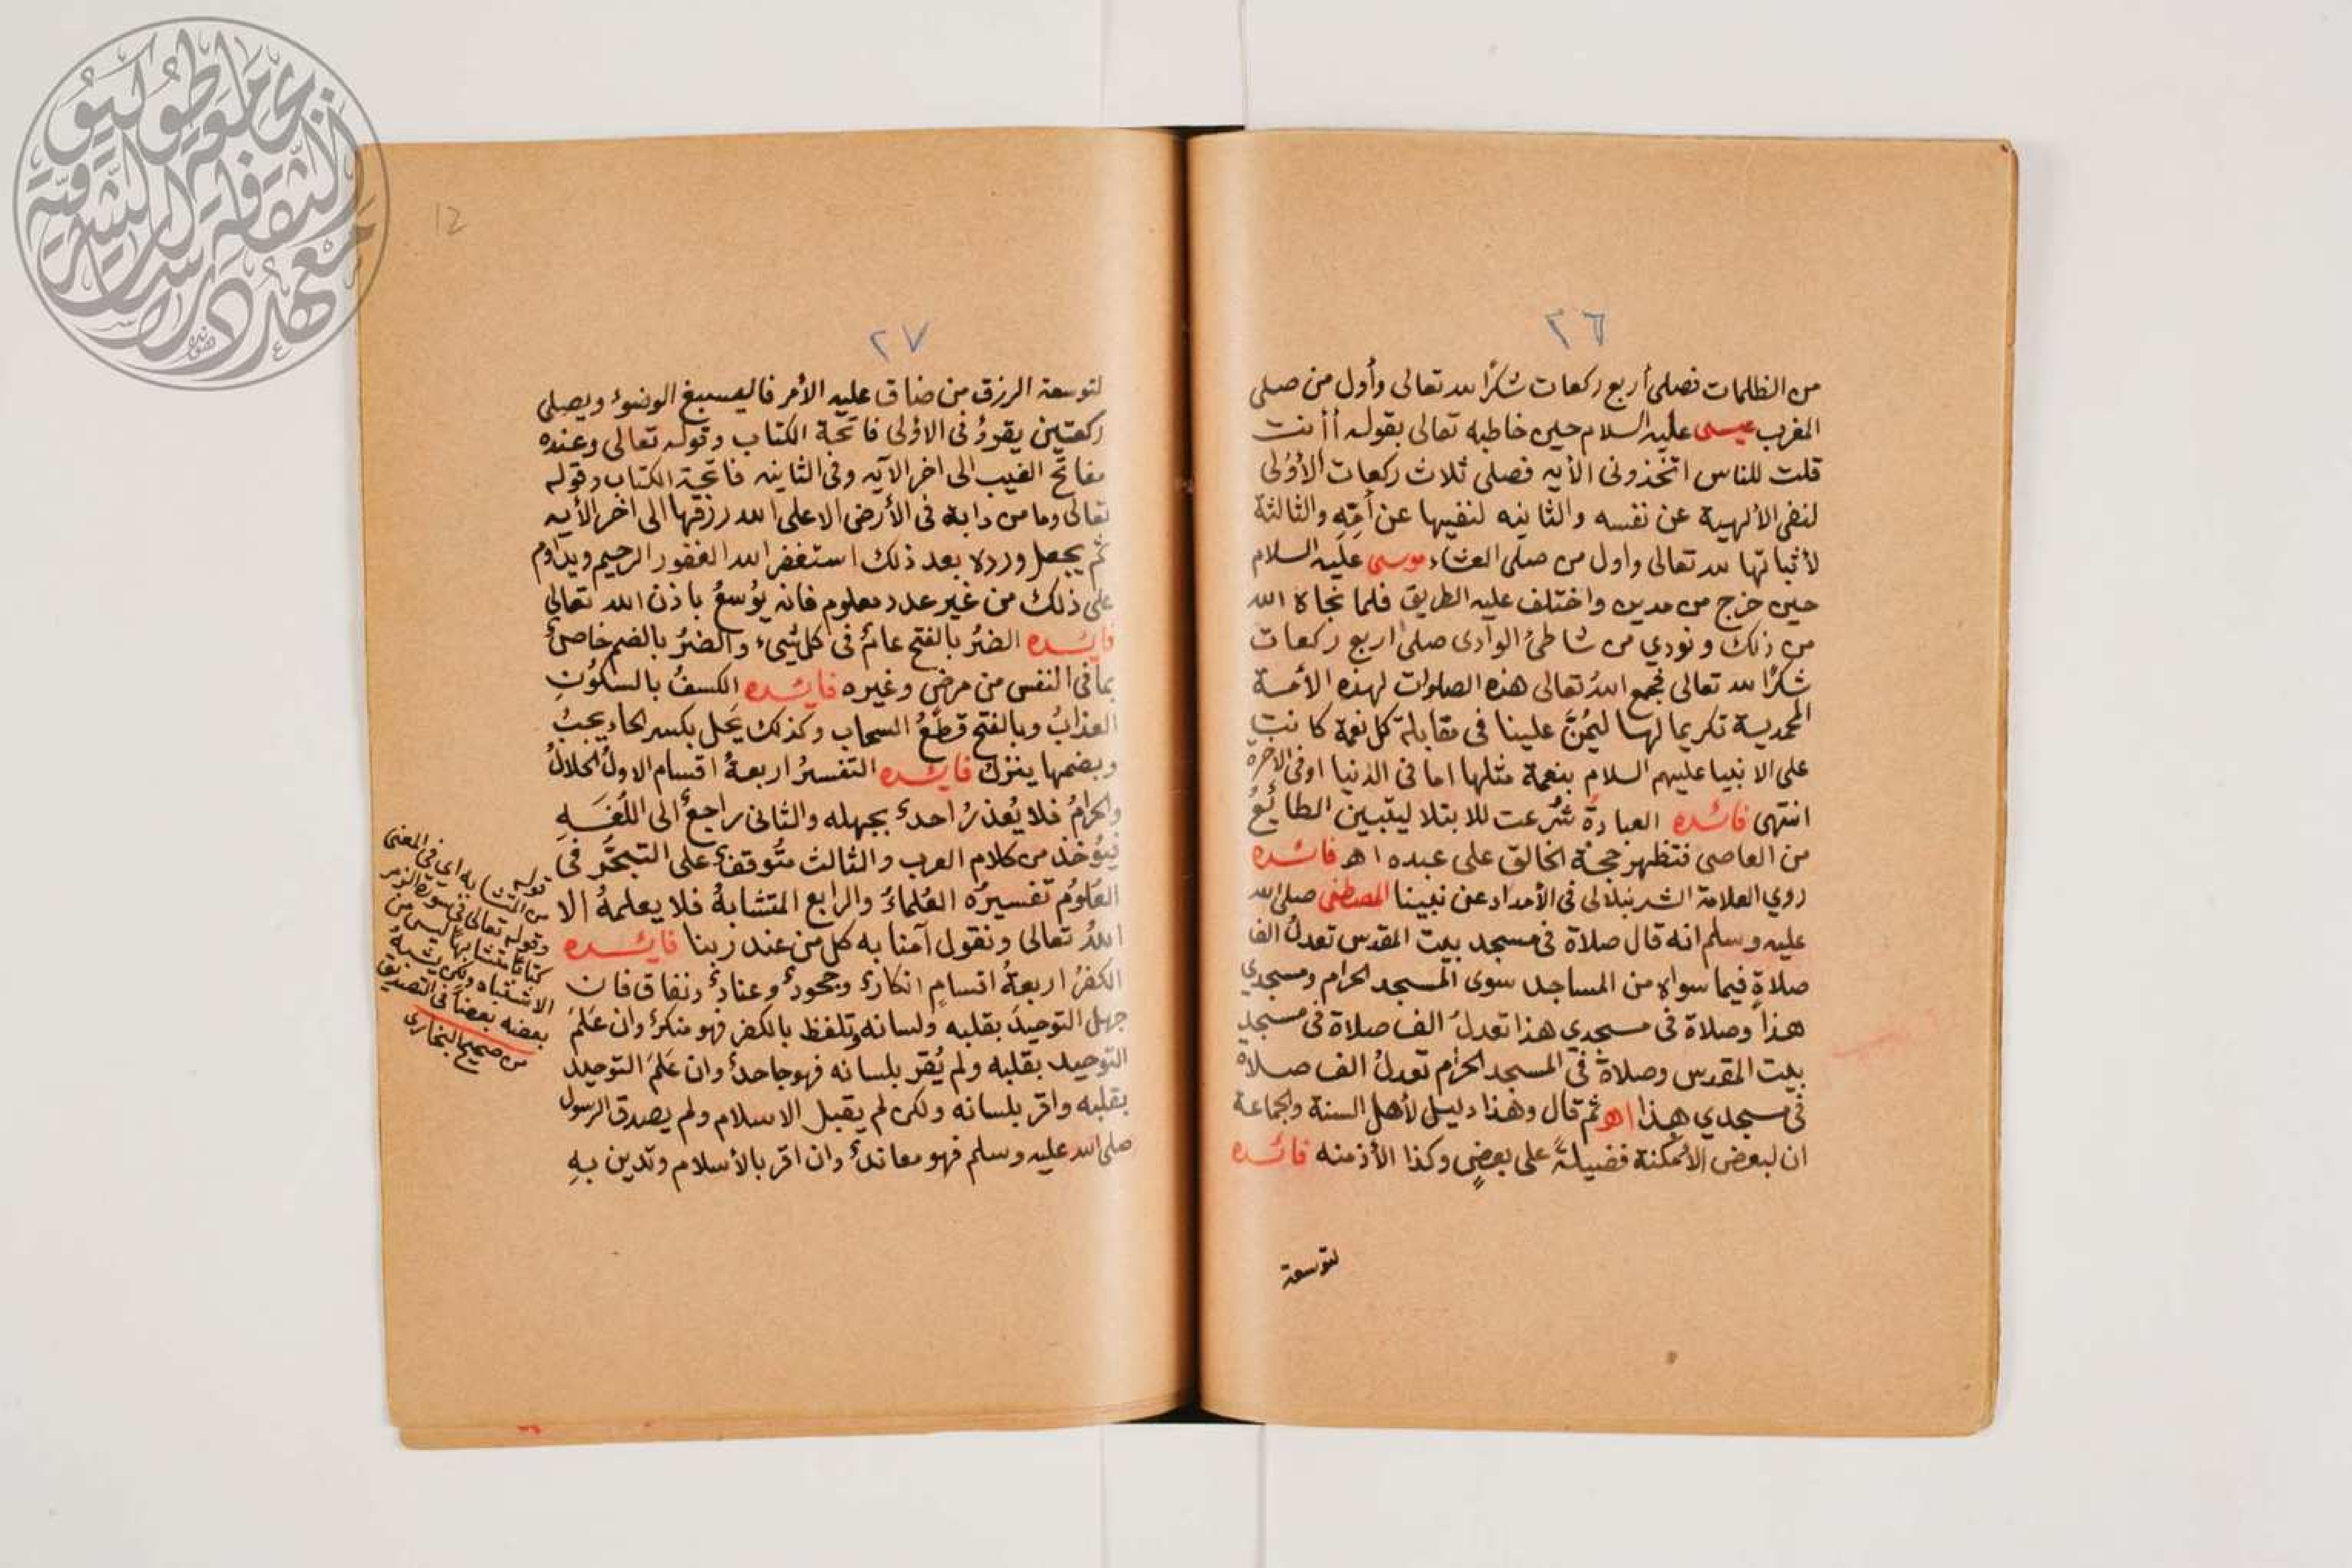 ٢٦
من الظلمات فصلى أربع ركعات شكرًا لله تعالى وأول من صلى
المغرب عيسى عليه السلام حين خاطبه تعالى بقوله أأنت
قلت للناس اتخذوني الأيه فصلى ثلاث ركعات الأوُلى
لنفي الألهية عن نفسه والثانيه لنفيها عن أمّهِ والثالثة
لأثباتها لله تعالى واول من صلى العشاء موسى عليه السلام
حين خرج من مدين واختلف عليه الطريق فلما نجاه الله
من ذلك ونودي من شاطئ الوادى صلى اربع ركعات
شكرًا لله تعالى فجمع اللهُ تعالى هذه الصلوات لهذه الأمة
المحمدية تكريما لها ليمُنَّ علينا في مقابلة كل نعمة كانت
على الانبيا عليهم السلام بنعمة مثلها اما في الدنيا اوفي الاخرة
انتهى فائده العبادةُ شُرعت للابتلا ليتبين الطائعُ
من العاصى فتظهر حجة الخالق على عبده اهـ فائده
روي العلامة الشرنبلالى فى الأمداد عن نبينا المصطفى صلى الله
عليه وسلم انه قال صلاة فى مسجد بيت المقدس تعدلُ الفا
صلاةٍ فيما سواه من المساجد سوى المسجد الحرام ومسجدي
هذا وصلاة فى مسجدي هذا تعدلُ الف صلاة فى مسجد
بيت المقدس وصلاة فى المسجد الحرام تعدلُ الف صلاة
فى مسجدي هذا اهـ ثم قال وهذا دليل لأهل السنة والجماعة
ان لبعض الأمكنة فضيلةً على بعضٍ وكذا الأزمنه فائده
لتوسعة
12
٢٧
لتوسعة الرزق من ضاق عليه الأمر فاليسبغ الوضوء ويصلى
ركعتين يقرؤ فى الاؤلى فاتحة الكتاب وقوله تعالى وعنده
مفاتح الغيب الى اخر الآيه وفى الثانيه فاتحة الكتاب وقوله
تعالى وما من دابة فى الأرض الا على الله رزقها الى اخر الأيه
ثم يجعل ورده بعد ذلك استغفر الله الغفور الرحيم ويداوم
على ذلك من غير عدد معلوم فانه يؤسعُ باذن الله تعالى
فايده الضرُ بالفتح عامٌ فى كل شيء والضرُ بالضم خاصٌ
بما فى النفس من مرضٍ وغيره فايده الكسفُ بالسكوُنِ
العذابُ وبالفتح قطعُ السحاب وكذلك يَحل بكسر الحاء يجبُ
وبضمها ينزل فايده التفسيرُ اربعةُ اقسام الاولُ الحلالُ
والحرامُ فلا يُعذرُ احدٌ بجهله والثانى راجعٌ الى اللُغَهِ
فيؤخذ من كلام العرب والثالث متُوقفٌ على التبحَّر فى
العلوُم تفسيرُه العُلماءُ والرابع المتشابهُ فلا يعلمهُ الا
اللهُ تعالى ونقول آمنا به كل من عند ربنا فايده
الكفرُ اربعةُ اقسامٍ انكارٌ وجحودٌ وعنادٌ ونفاق فان
جهل التوحيدَ بقلبه ولسانه وتلفظ بالكفر فهو منكرٌ وان عَلمَ
التوحيد بقلبه ولم يُقر بلسانه فهو جاحدٌ وان عَلمَ التوحيد
بقلبه واقر بلسانه ولكن لم يقبل الاسلام ولم يصدق الرسول
صلى الله عليه وسلم فهو معاندٌ وان اقر بالأسلام وتدين بهِ
قوله
من المتشابه اي فى المعنى
وقوله تعالى فى سورة الزمر
كتابًا متشابهًا ليس من
الاشتباه ولكن يشبهُ
بعضه بعضاً فى التصديق
من صحيح البخارى